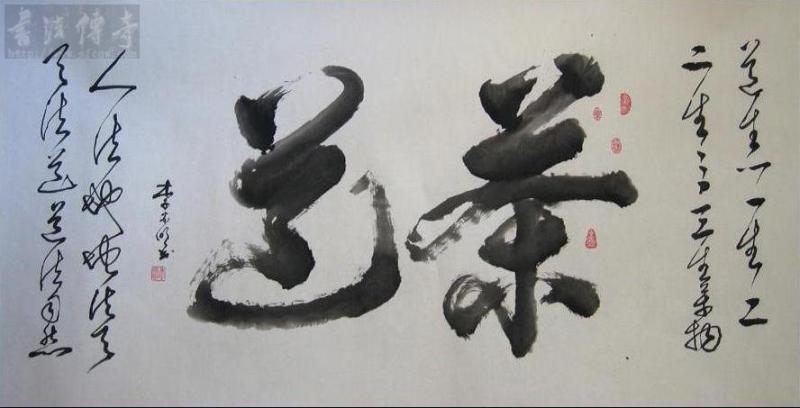 道生一一生二
二生三三生萬物
茶道
人法地地法天
天法道道法自然
書法傳奇